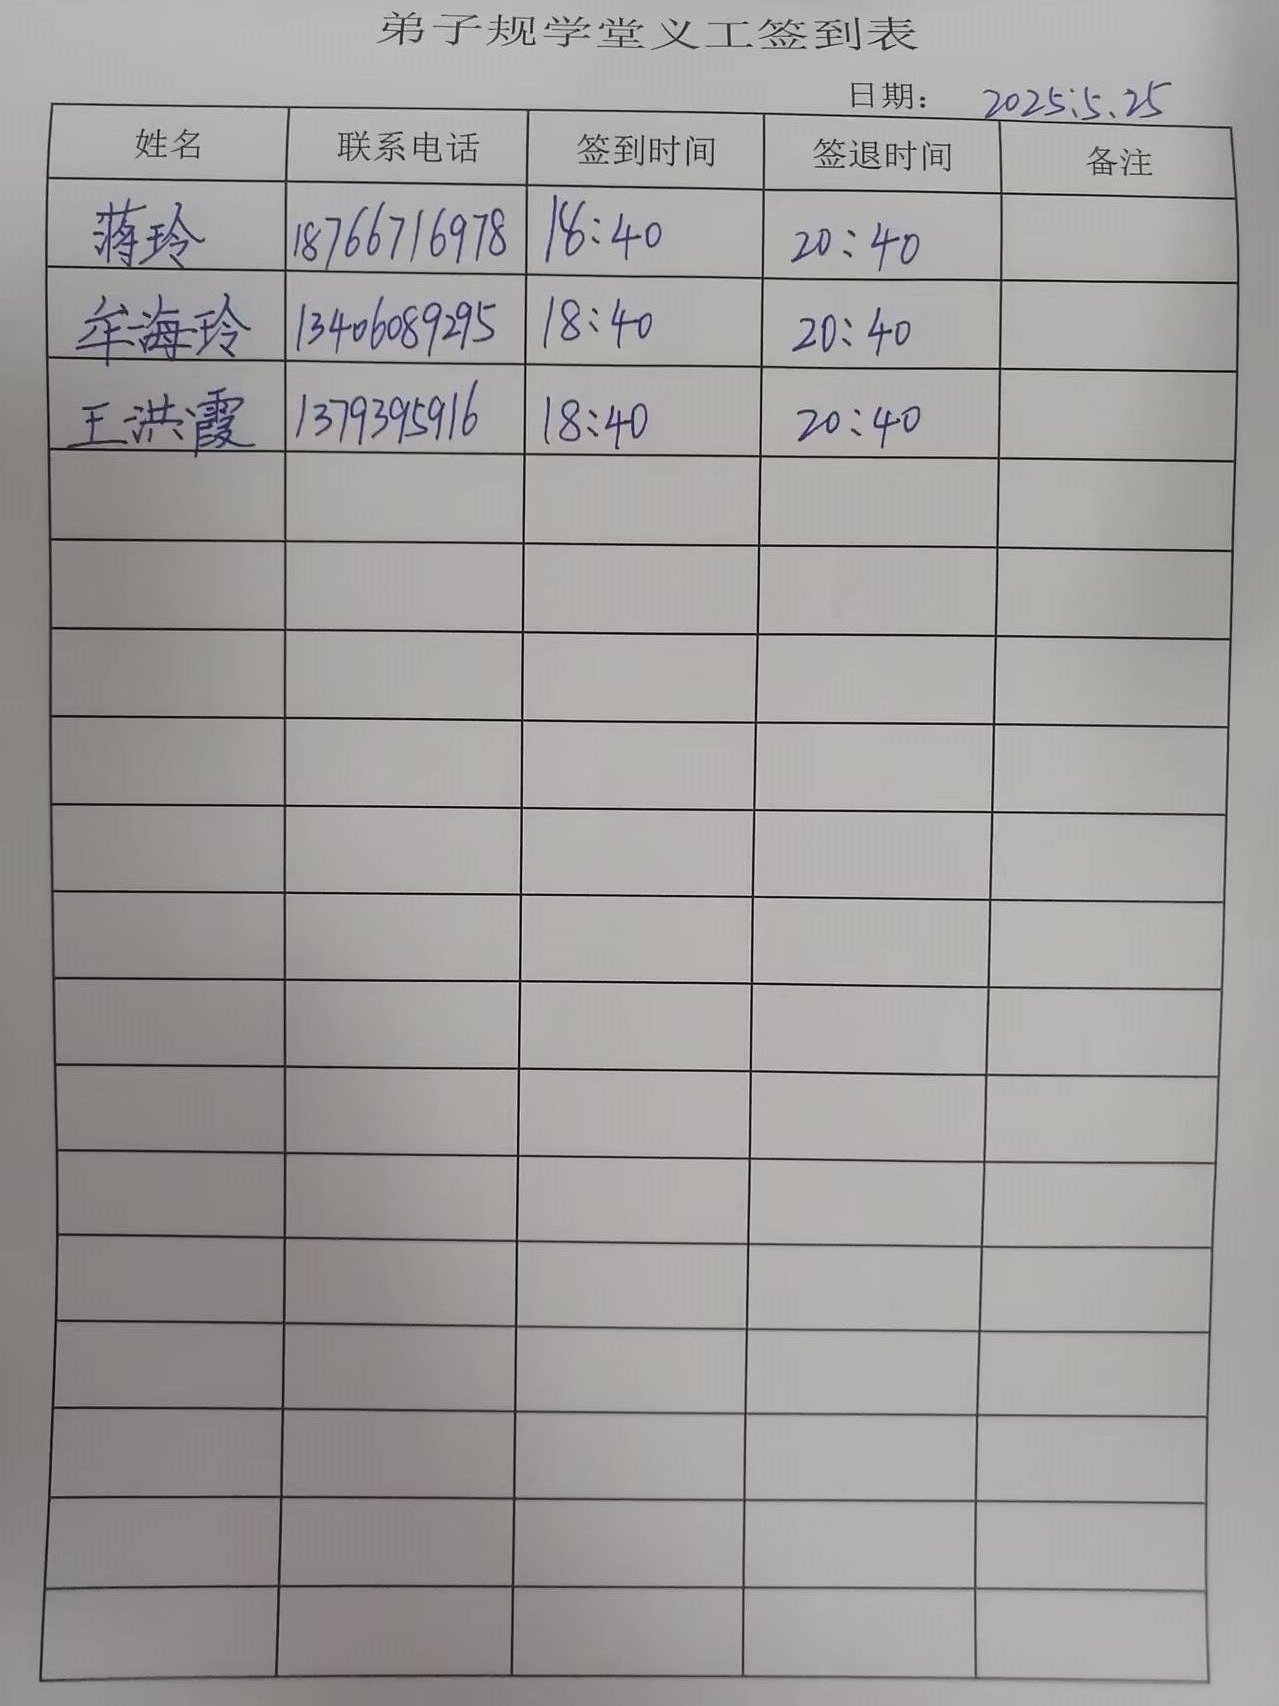 弟子规学堂义工签到表
日期： 2025.5.25
姓名 联系电话 签到时间 签退时间 备注
蒋玲 18766716978 18:40 20:40
牟海玲 13406089295 18:40 20:40
王洪霞 1379395916 18:40 20:40